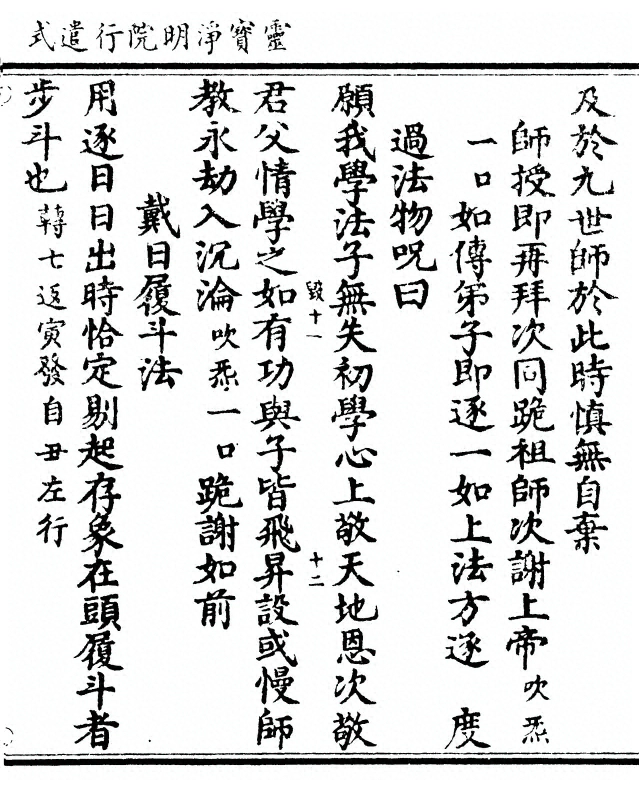 靈寶淨明院行遣式
及於九世師於此時慎無自棄
師授即再拜次同跪祖師次謝上帝吹炁
一口如傳弟子即逐一如上法方逐 度
過法物呪曰
願我學法子無失初學心上敬天地恩次敬
毀十一
十二
君父情學之如有功與子皆飛昇設或慢師
教永劫入沉淪吹炁一口跪謝如前
戴日履斗法
用逐日日出時恰定剔起存象在頭履斗者
步斗也 七返寅發自丑左行